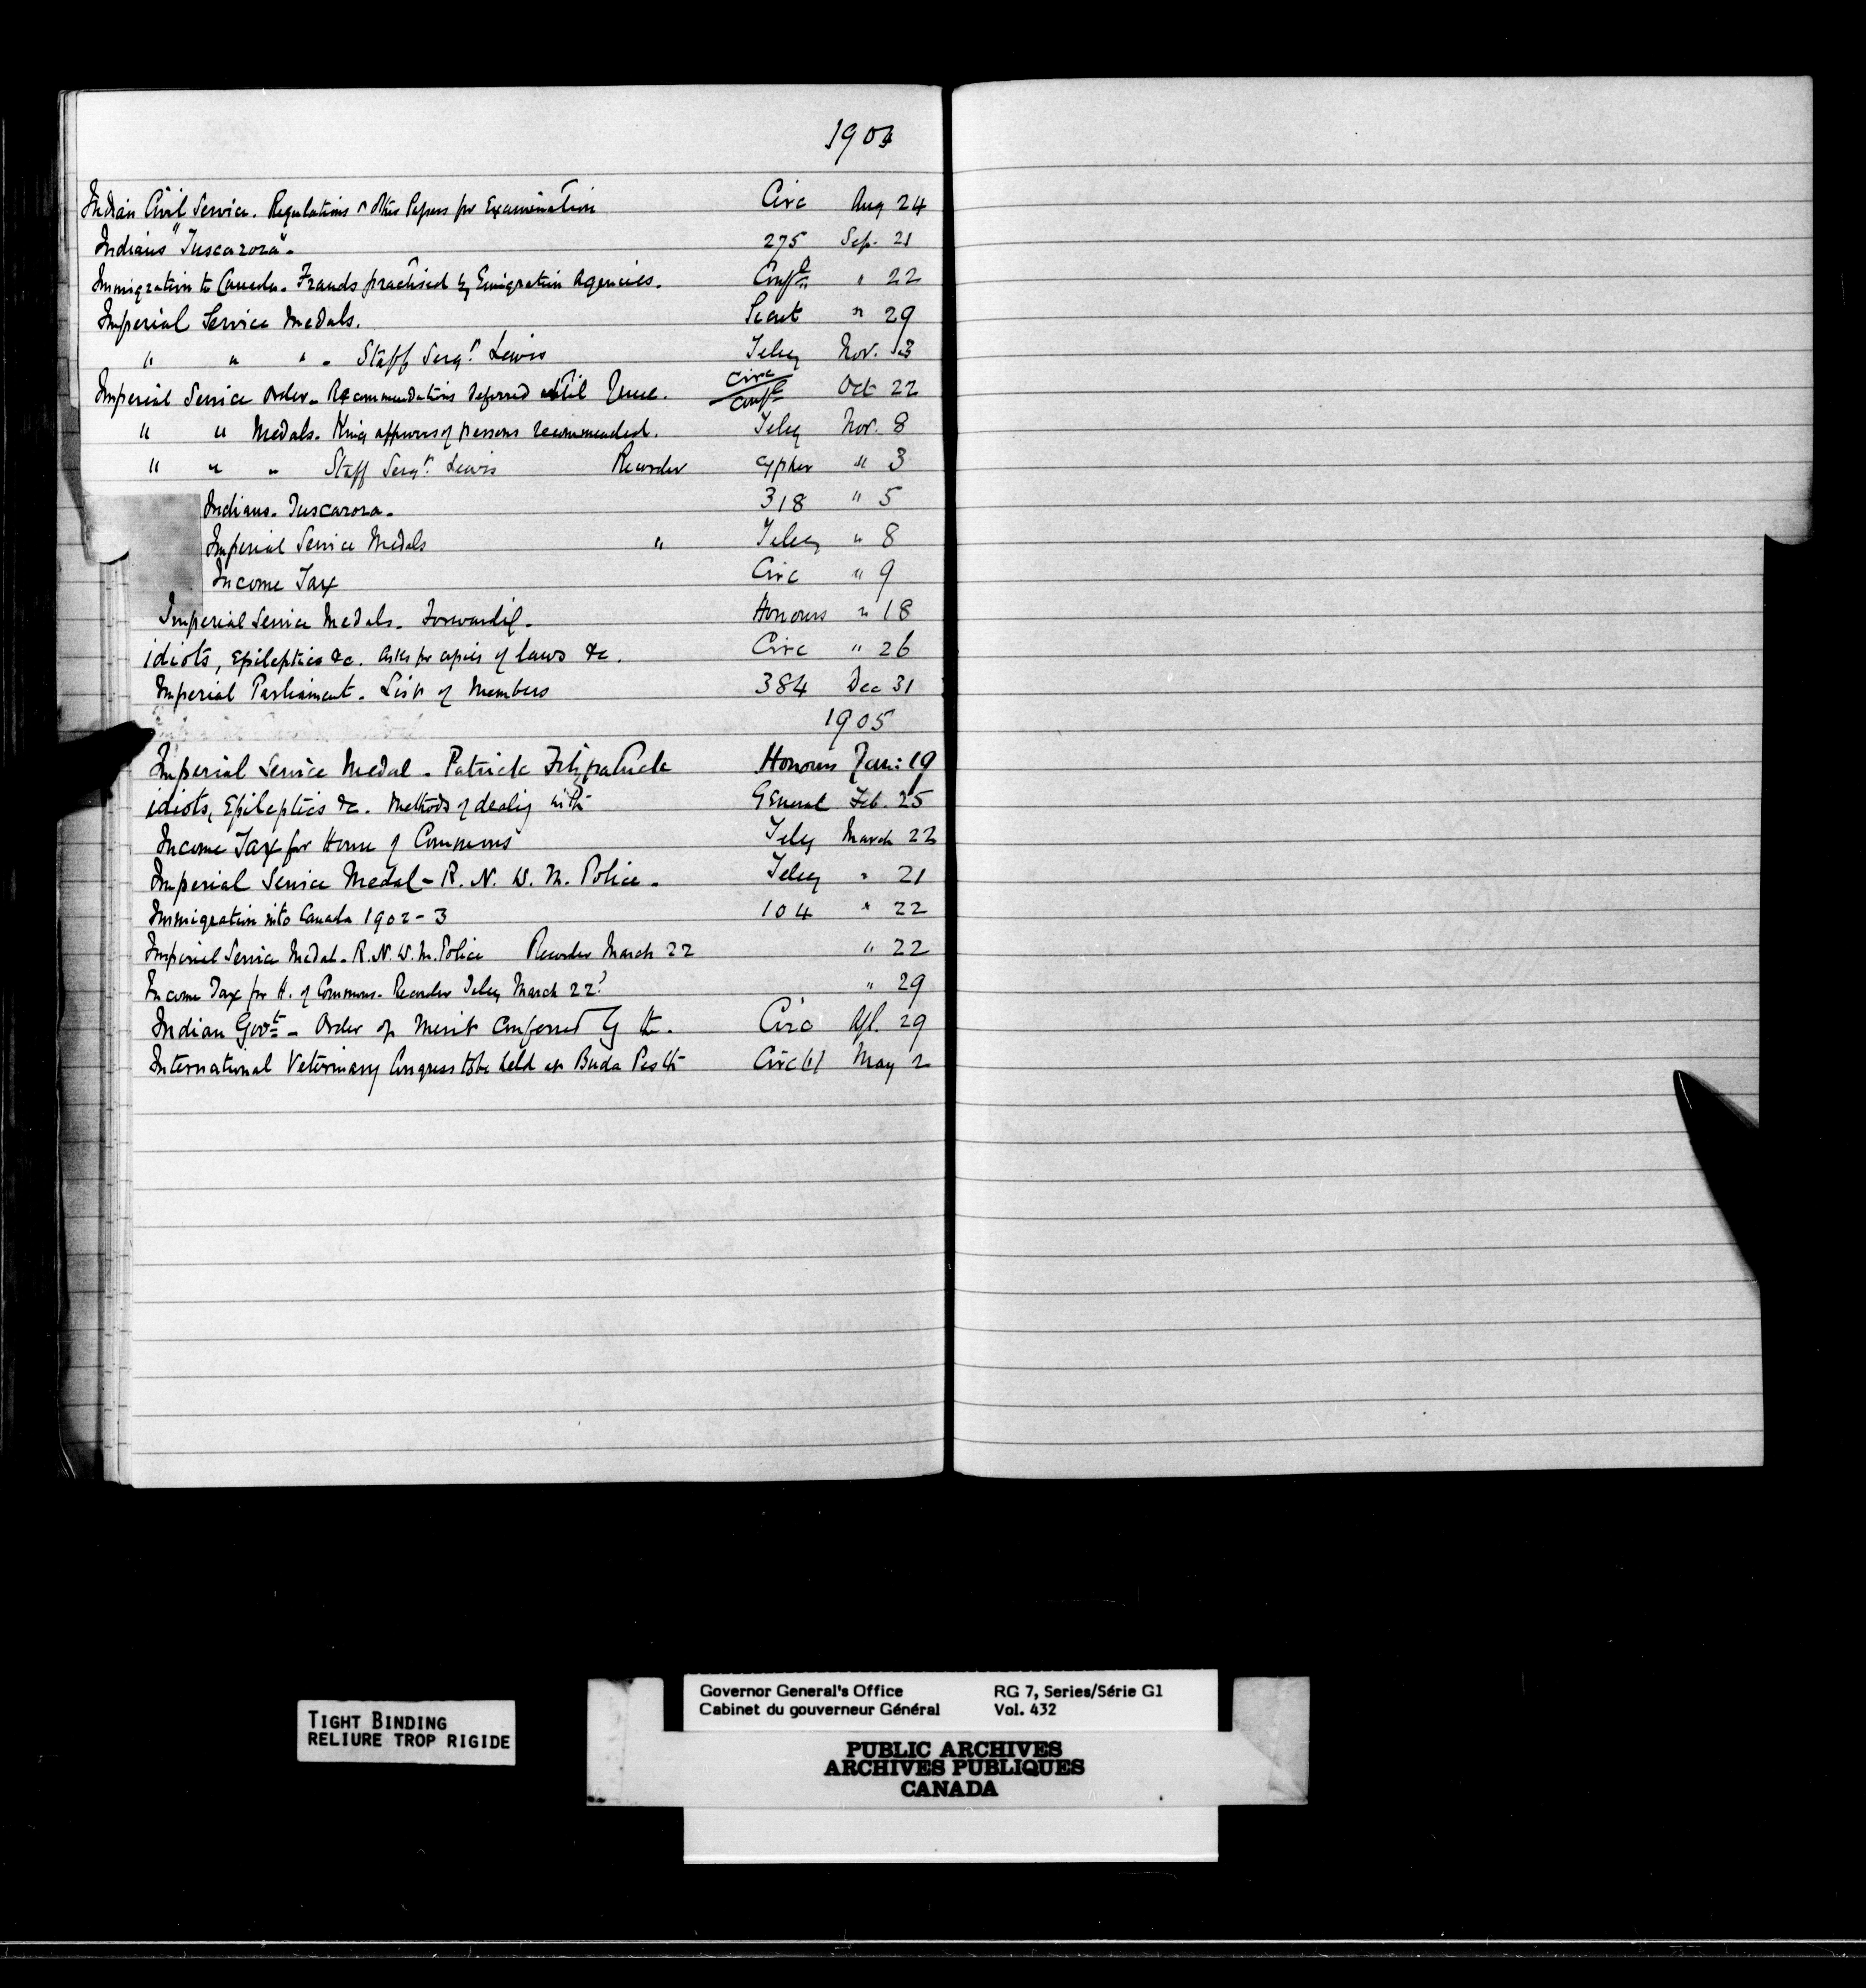 1904
Indian Civil Service. Regulations & other Papers for Examination Circ Aug 24
Indians "Tuscarora". 275 Sep. 21
Immigration to Canada. Frauds practised by Emigration Agencies. Conf'l " 22
Imperial Service Medals. Secret " 29
" " " - Staff Sergt. Lewis Teleg Nov. 3
Imperial Service Order. Recommendations deferred until June. Circ/Conf'l Oct 22
" " Medals. King approves of persons recommended. Teleg Nov. 8
" " " Staff Sergt. Lewis Recorder cypher " 3
Indians. Tuscarora. 318 " 5
Imperial Service Medals " Teleg " 8
Income Tax Circ " 9
Imperial Service Medals. Forwardg. Honours " 18
idiots, Epileptics &c. Asks for copies of laws &c. Circ " 26
Imperial Parliament. List of Members 384 Dec 31
1905
Imperial Service Medal. Patrick Fitzpatrick Honours Jan: 19
idiots, Epileptics &c. Methods of dealig with General Feb. 25
Income Tax for House of Commons Teleg March 22
Imperial Service Medal - R. N. W. M. Police. Teleg " 21
Immigration into Canada 1902-3 104 " 22
Imperial Service Medal. R.N.W.M. Police Recorder March 22 " 22
Income Tax for H. of Commons. Recorder Teleg March 22? " 29
Indian Govt - Order of Merit conferred by the. Circ Apl. 29
International Veterinary Congress to be held at Buda Pesth Circ May 2
TIGHT BINDING
RELIURE TROP RIGIDE
Governor General's Office RG 7, Series/Série G1
Cabinet du gouverneur Général Vol. 432
PUBLIC ARCHIVES
ARCHIVES PUBLIQUES
CANADA